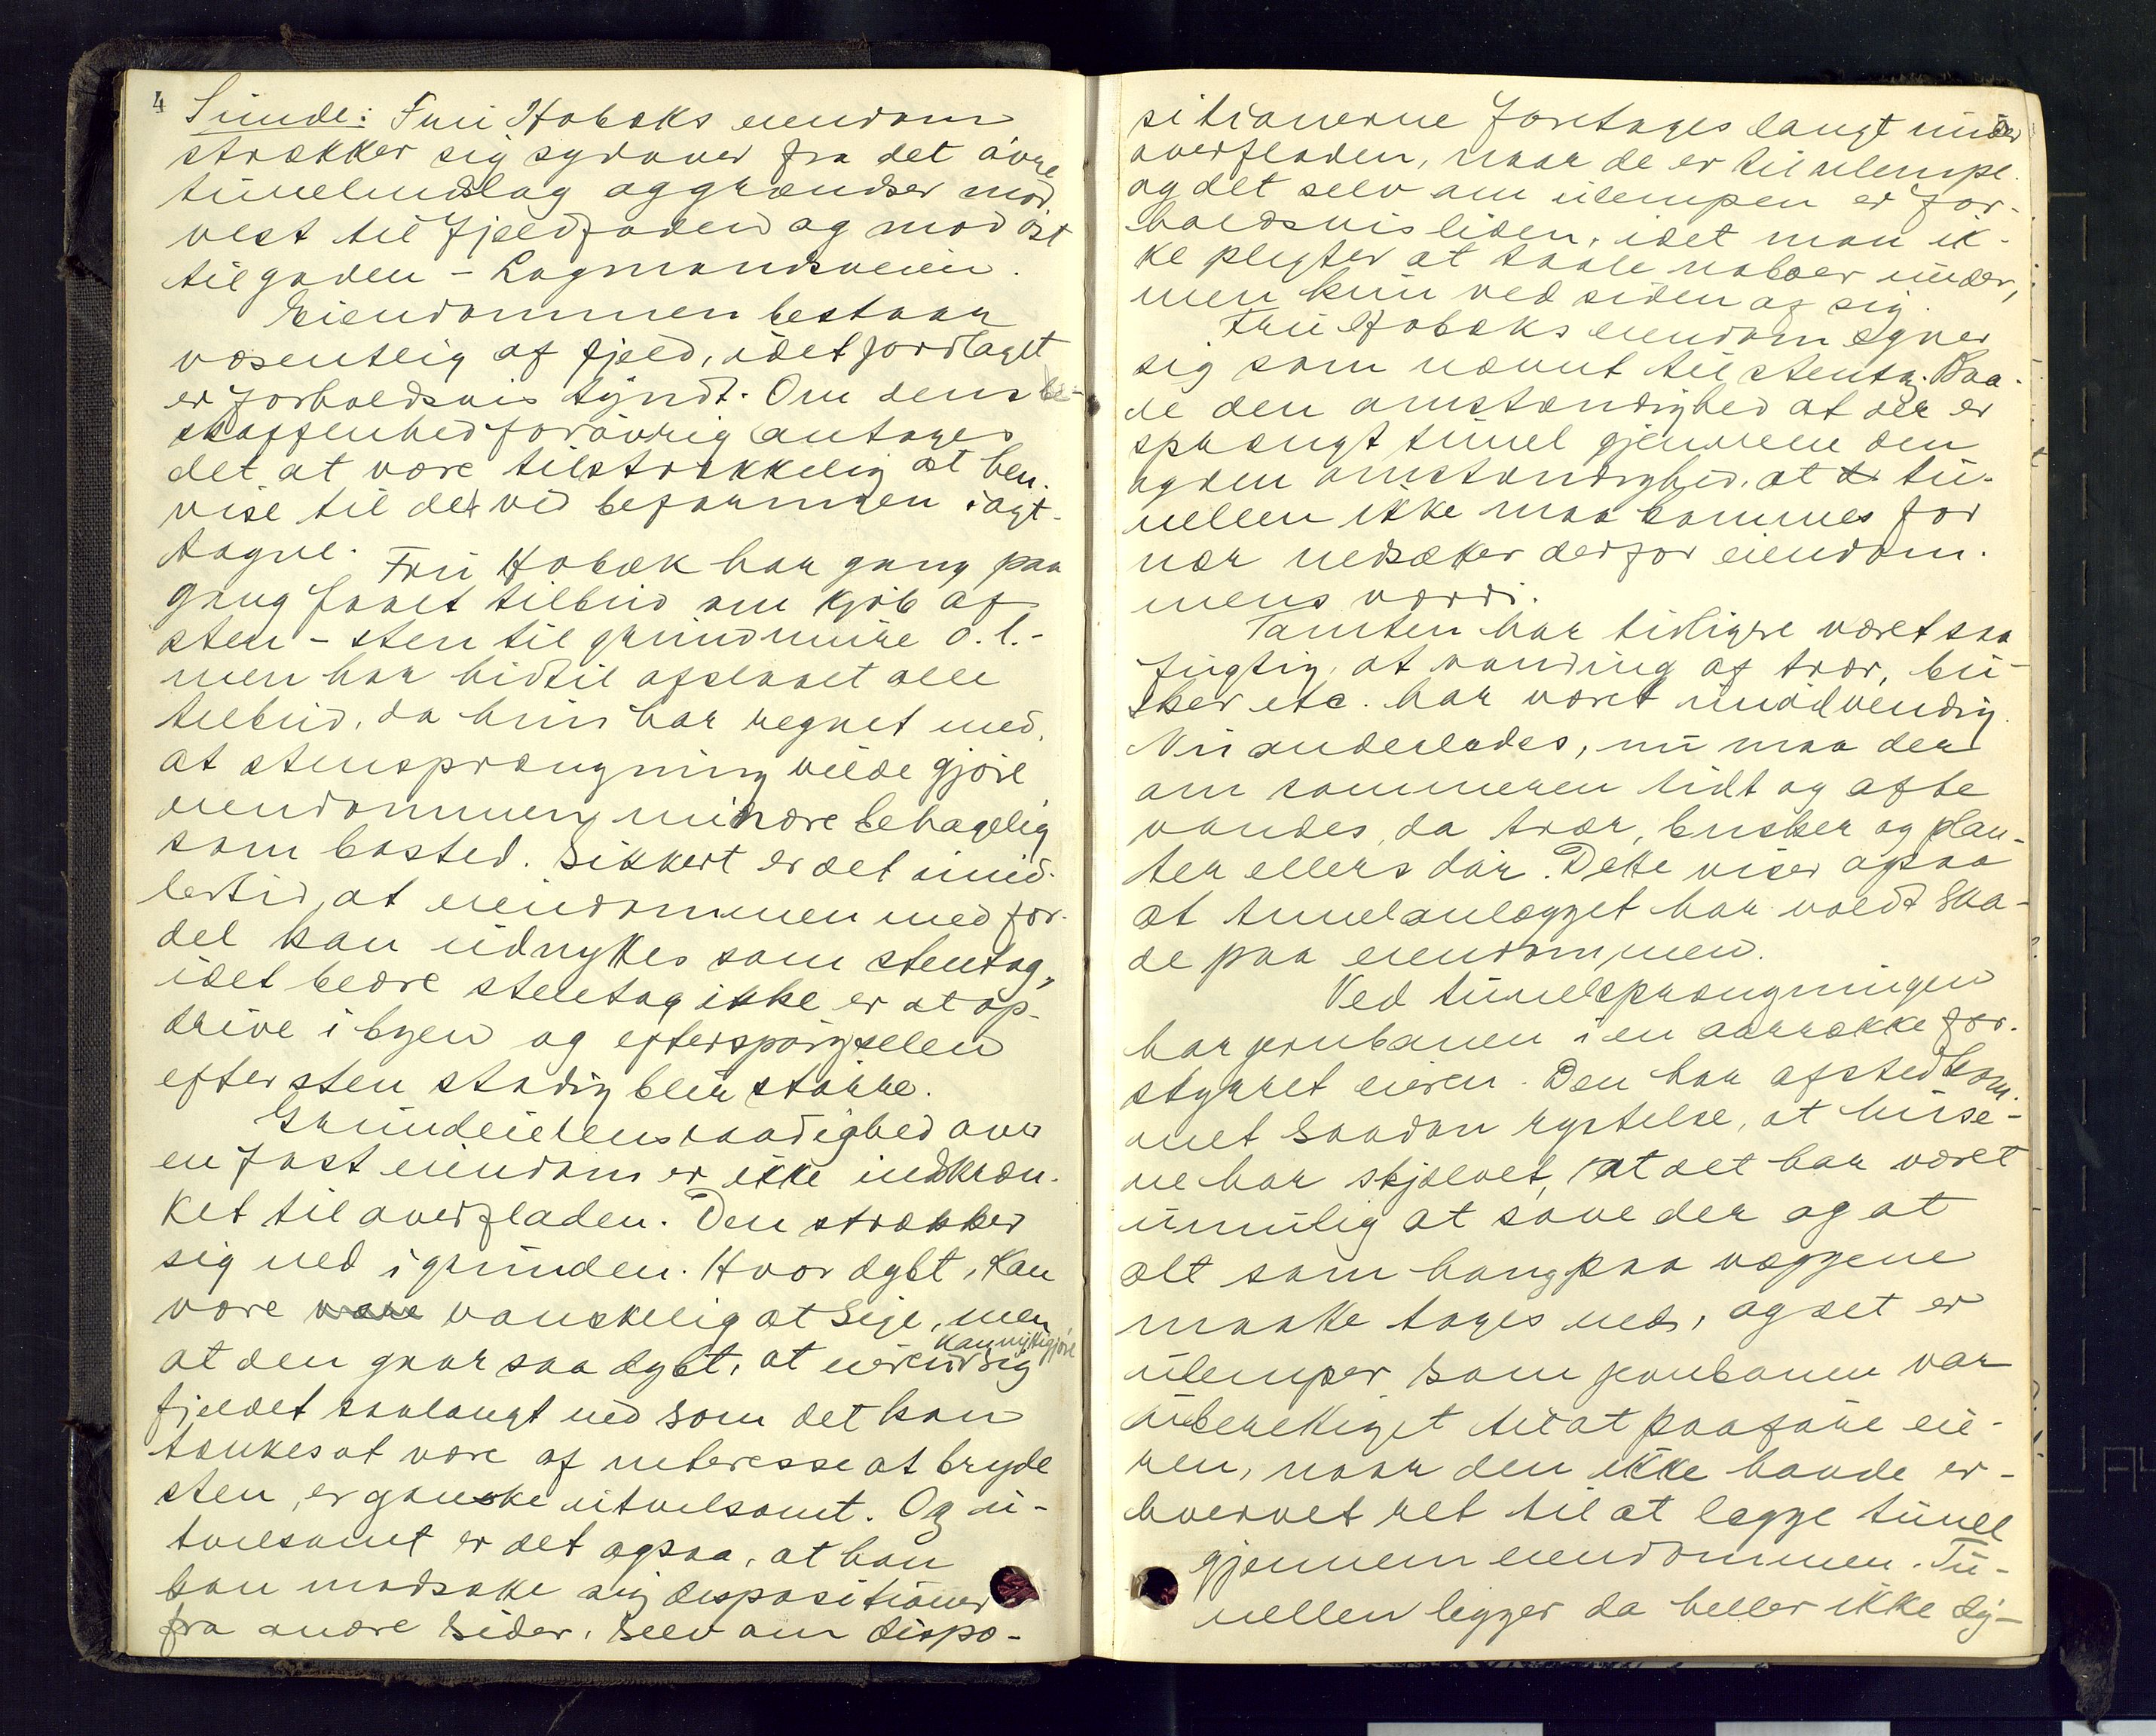 4
Sunde: Fru Hobæks eiendom
strækker sig sydover fra det øvre
tunelindslag og grændser mod
vest til fjeldfoden og mod øst
til gaden - Lagmandsveien.
Eiendommen bestaar
væsentlig af fjeld, idet jordlaget
er forholdsvis tyndt. Om dens be-
skaffenhed forøvrig antages
det at være tilstrækkelig at hen-
vise til det ved befaringen iagt-
tagne.
Fru Hobæk har gang paa
gang faaet tilbud om kjøb af
sten - sten til grundmure o.l. -
men har hidtil afslaaet alle
tilbud, da hun har regnet med,
at stensprængning vilde gjøre
eiendommen mindre behagelig
som bosted. Sikkert er det imid-
lertid, at eiendommen med for-
del kan udnyttes som stentag,
idet bedre stentag ikke er at op-
drive i byen og efterspørgselen
efter sten stadig blir større.
Grundeierens raadighed over
en fast eiendom er ikke indskræn-
ket til overfladen. Den strækker
sig ned i grunden. Hvor dybt, kan
være være vanskelig at sige, men
at den gaar saa dybt, at eieren kan nyttiggjøre sig
fjeldet saalangt ned som det kan
tænkes at være af interesse at bryde
sten, er ganske utvilsomt. Og u-
tvilsomt er det ogsaa, at han
kan modsætte sig dispositioner
fra andre sider, selv om dispo-
sitionerne foretages langt under
overfladen, naar de er til ulempe
og det selv om ulempen er for-
holdsvis liden, idet man ik-
ke pligter at taale naboer under,
men kun ved siden af sig.
Fru Hobæks eiendom egner
sig som nævnt til stentag. Baa-
de den omstændighed at der er
sprængt tunel gjennem den
og den omstændighed, at tu-
nellen ikke maa kommes for
nær nedsætter derfor eiendom-
mens værdi.
Tomten har tidligere været saa
fugtig, at vanding af trær, bu-
sker etc. har været unødvendig.
Nu anderledes, nu maa der
om sommeren tidt og ofte
vandes, da trær, busker og plan-
ter ellers dør. Dette viser ogsaa
at tunelanlægget har voldt ska-
de paa eiendommen.
Ved tunelsprængningen
har jernbanen i en aarrække for-
styrret eieren. Den har afstedkom-
met saadan rystelse, at huse-
ne har skjælvet, at det har været
umulig at sove der og at
alt som hang paa væggene
maatte tages ned, og det er
ulemper som jernbanen var
uberettiget til at paaføre eie-
ren, naar den ikke havde er-
hvervet ret til at lægge tunell
gjennem eiendommen. Tu-
nellen ligger da heller ikke dy-